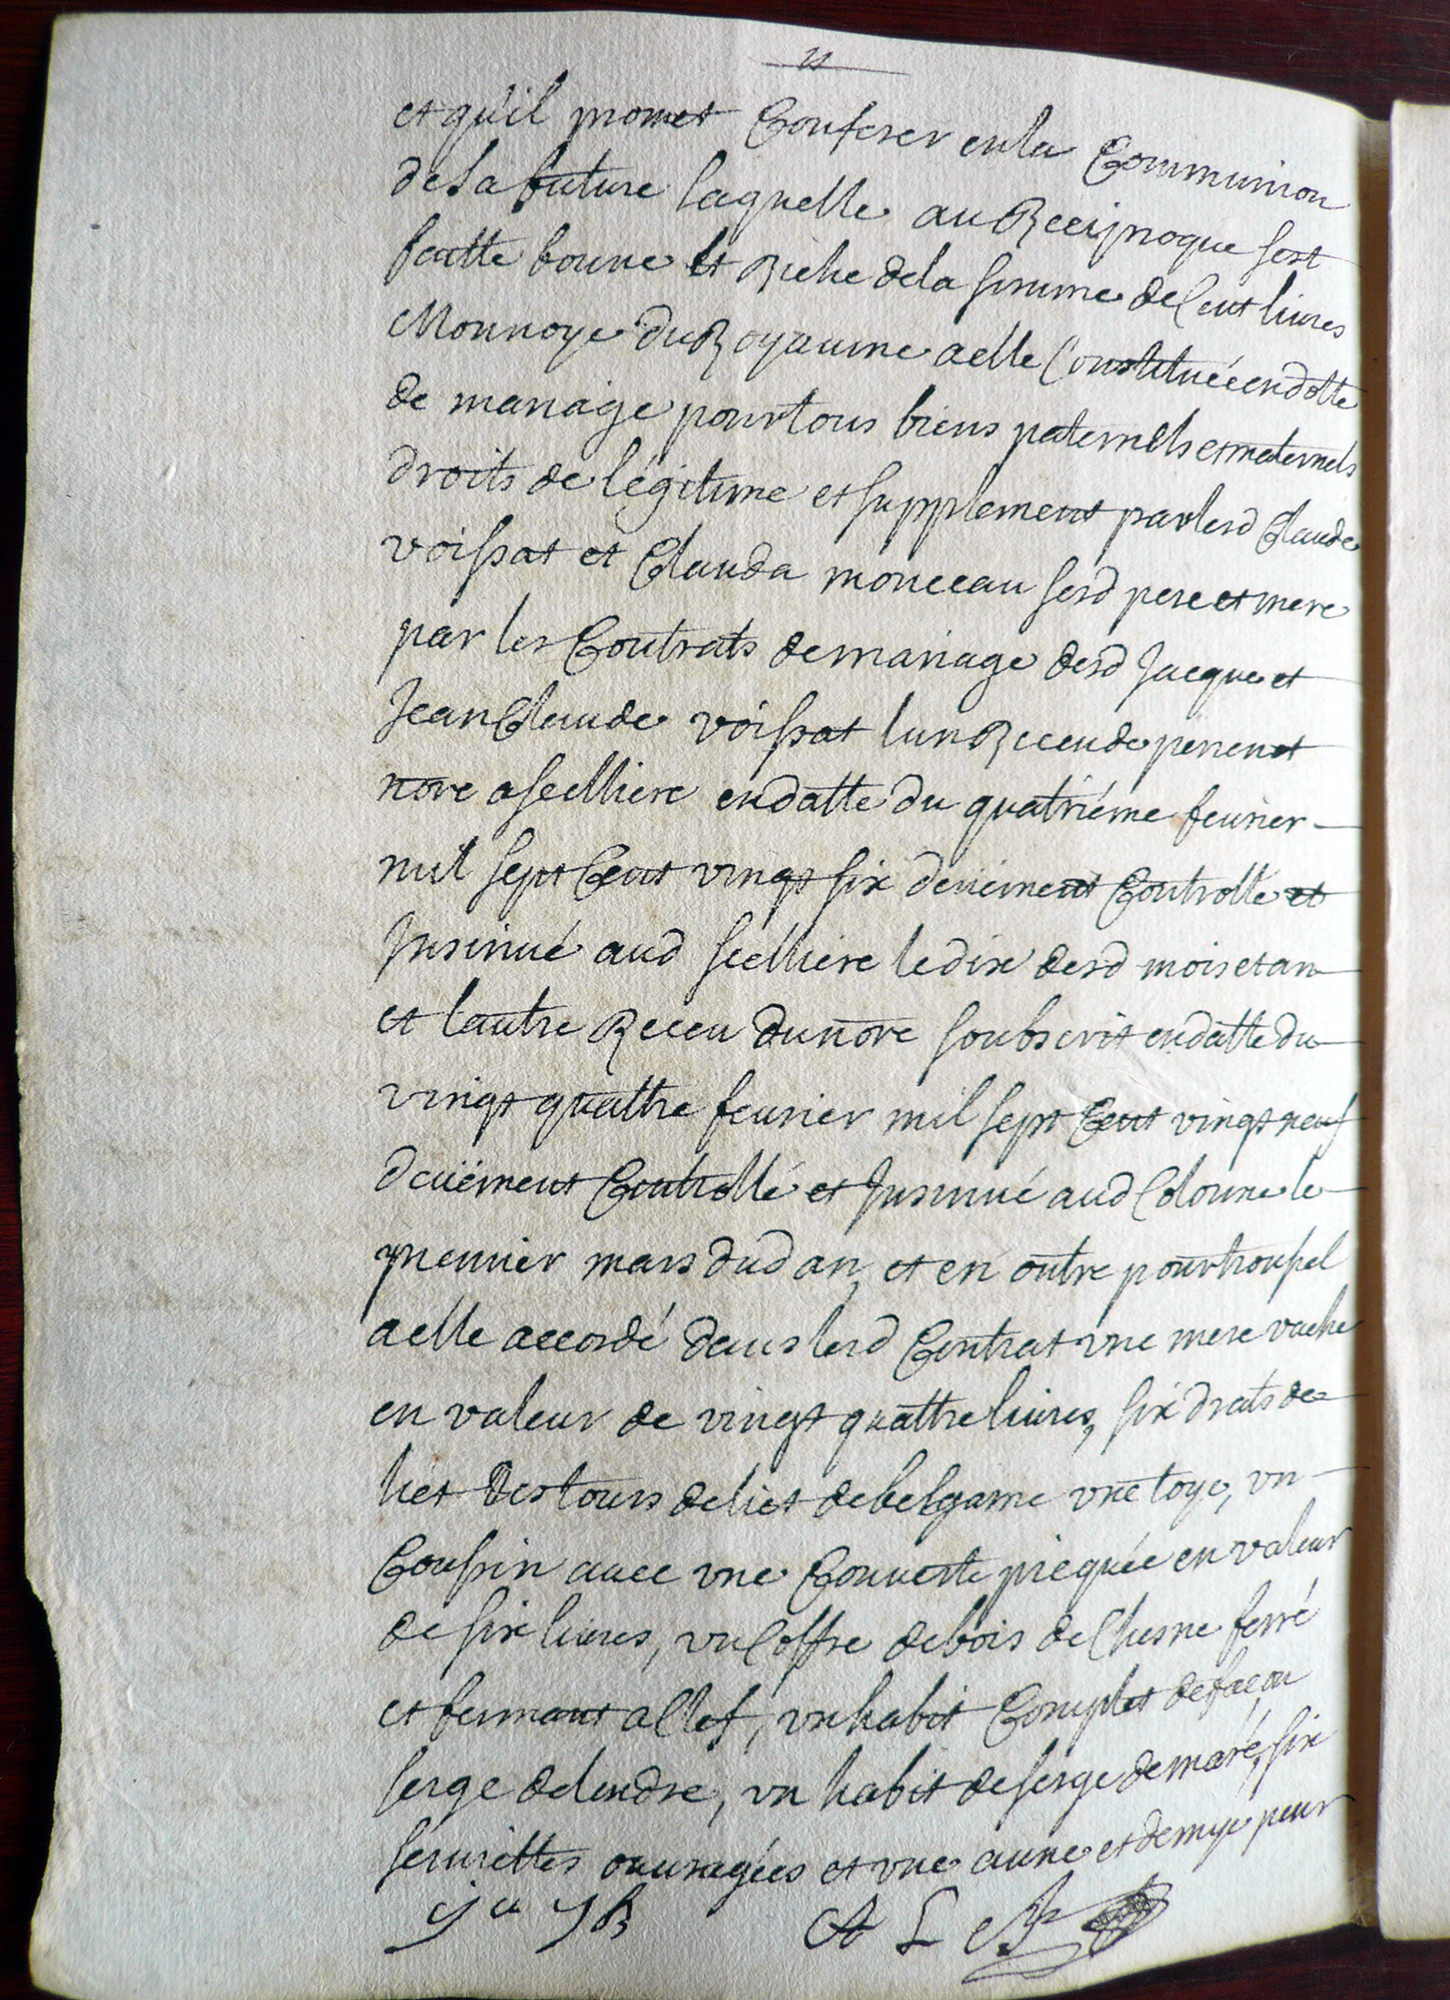 et qu'il promet Conferer en la Communion
de la future laquelle au Reciproque s'est
faitte bonne et Riche de la somme de Cent livres
Monnoye du Royaume a elle Constituée en dotte
de mariage pour tous biens paternels et maternels
droits de légitime et supplement par lesd Claude
voissat et Clauda monceau sesd pere et mere
par les Contrats de mariage desd Jacque et
Jean Claude voissat lun Receu de perrenet
nore a seelliere en datte du quatriéme feurier
mil sept Cent vingt six deüement Controllé et
Insinué aud seelliere le dix desd mois et an
et lautre Receu du nore soubscrit en datte du
vingt quattre feurier mil sept Cent vingt neuf
deüement Controllé et Insinué aud Colonne le
premier mars dud an, et en outre pour trousel
a elle accordé dans lesd Contrat vne mere vache
en valeur de vingt quattre liures, six drats de
liet des tours de liet de belgame vne toye, vn
Coussin auec vne Couuerte piequée en valeur
de six liures, vn Coffre de bois de Chesne ferré
et fermant a Clef, vn habit Complet de facon
serge de lendre, vn habit de serge de maré, six
seruiettes ouuragées et vne aune et demye pour